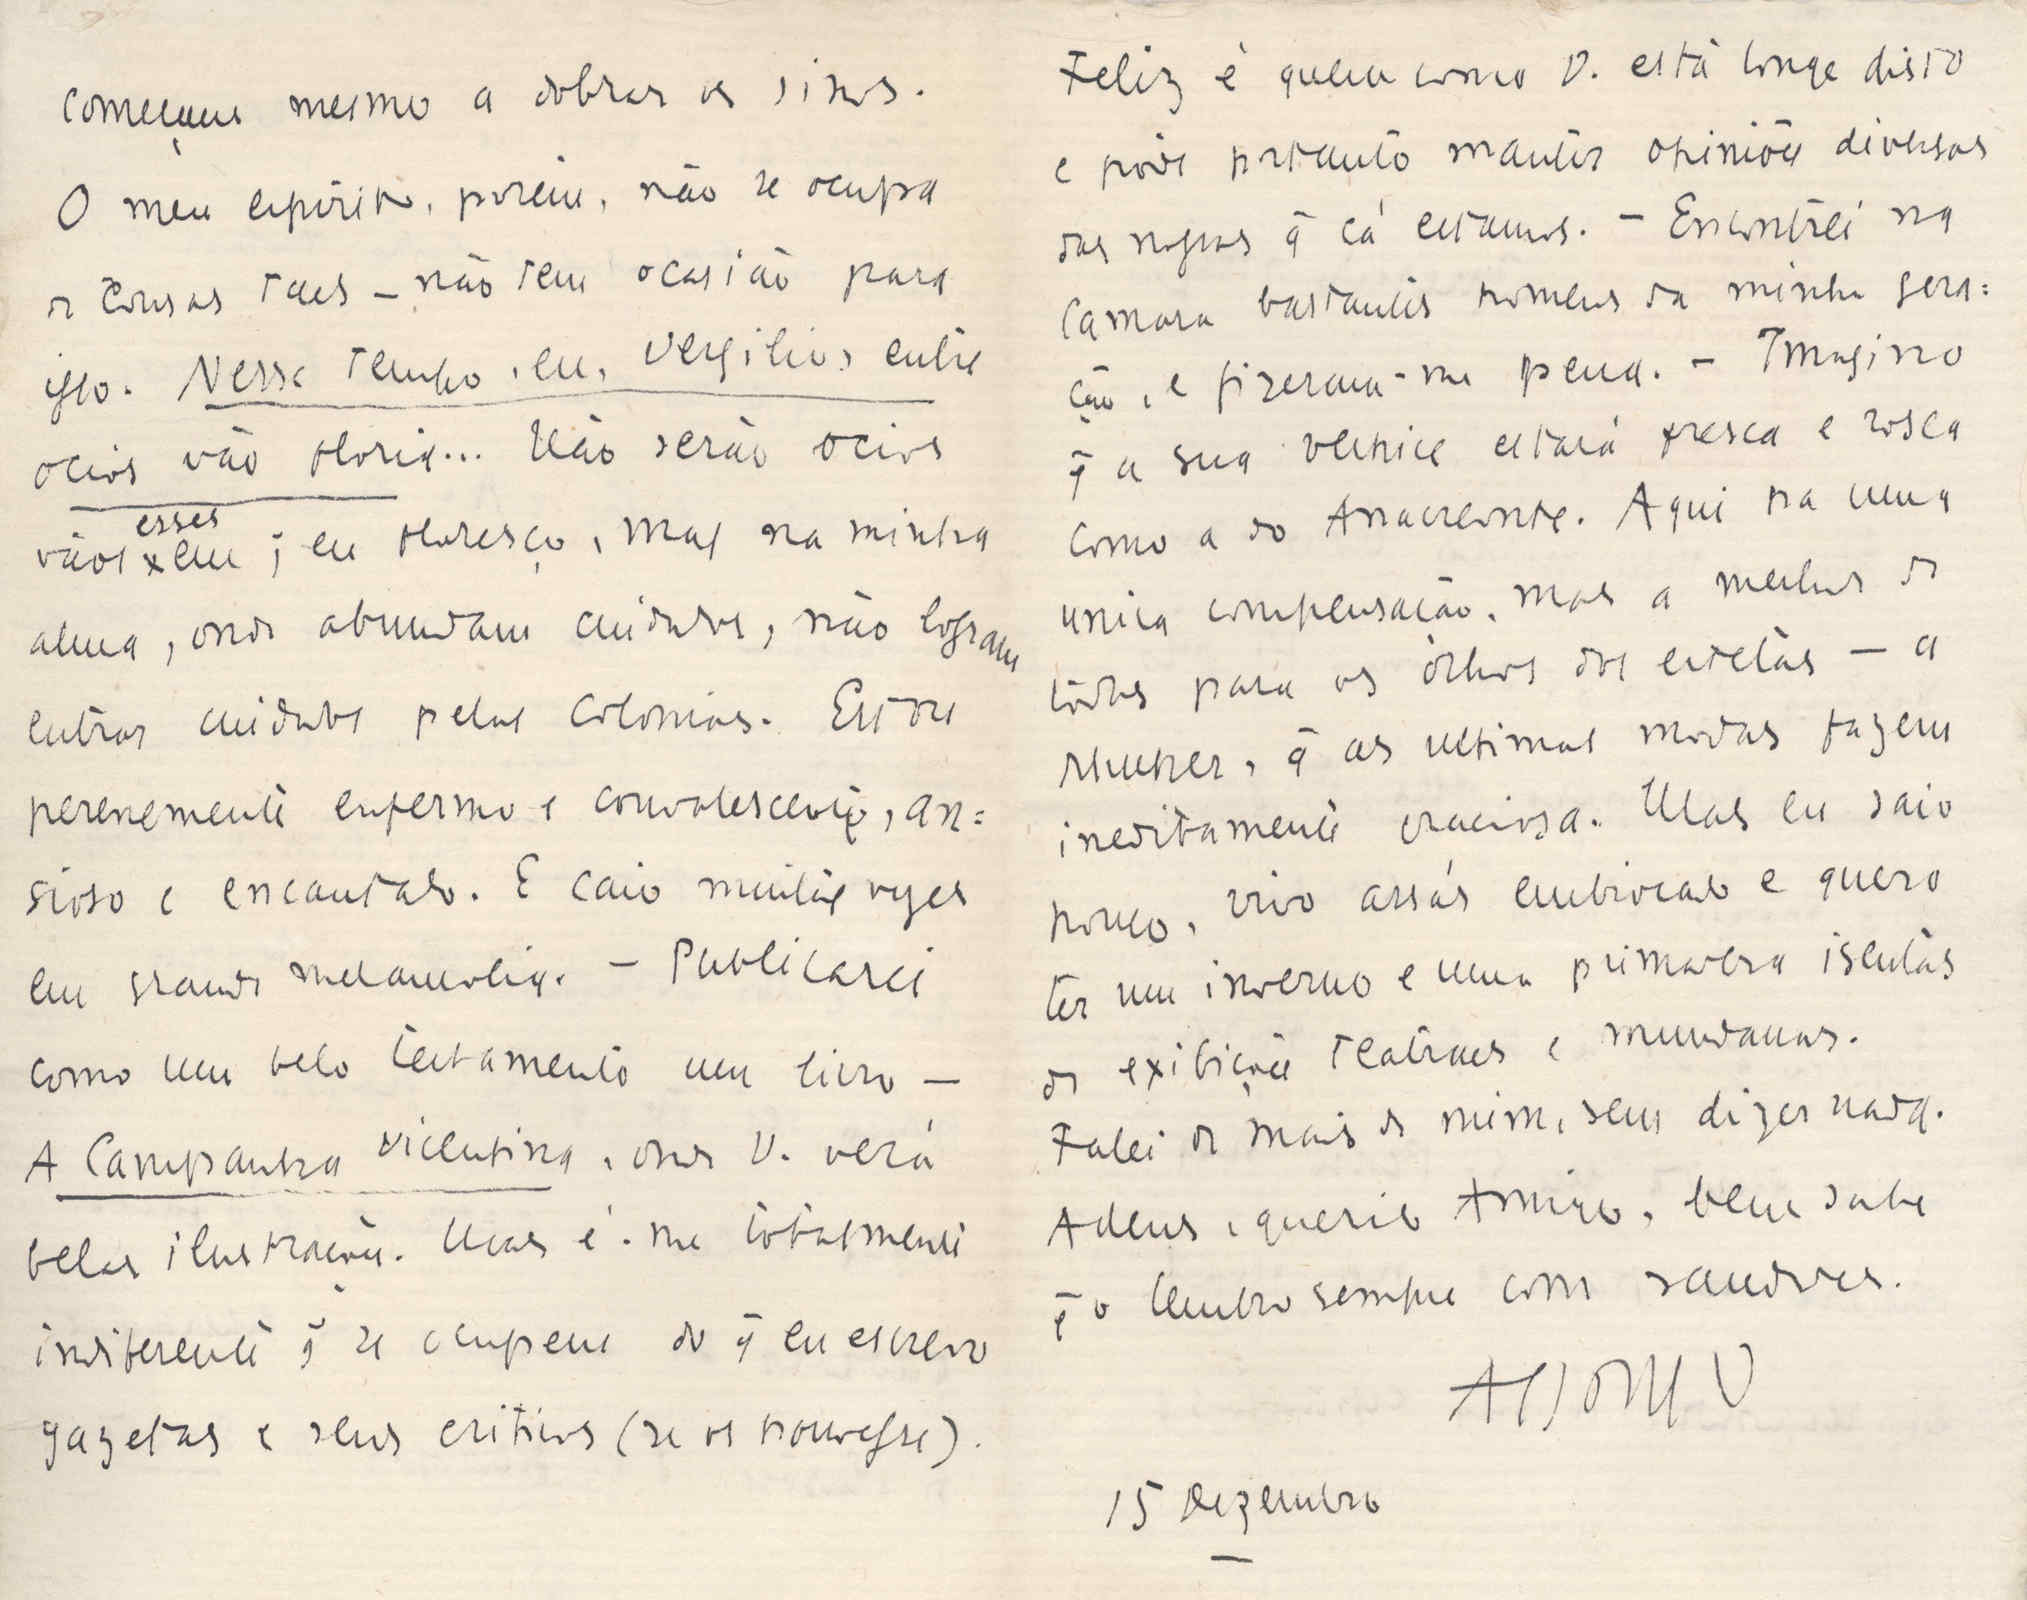 começam mesmo a dobrar os sinos.
O meu espirito, porém, não se ocupa
de cousas taes – não tem ocasião para
isso. Nesse tempo, eu, Vergilio, entre
ocios vãos floria... Não serão ocios
vãos esses em q eu floresço, mas na minha
alma, onde abundam cuidados, não logram
entrar cuidados pelas colonias. Estou
perenemente enfermo e convalescente, an=
sioso e encantado. E caio muitas vezes
em grande melancolia. – Publicarei
como um belo testamento um livro –
A Campanha Vicentina, onde V. verá
belas ilustrações. Mas é-me totalmente
indiferente q̃ se ocupem do q̃ eu escrevo
gazetas e seus criticos (se os houvesse).
Feliz é quem como V. está longe disto
e póde portanto manter opiniões diversas
das nossas q̃ cá estamos. – Encontrei na
Camara bastantes homens da minha gera=
ção, e fizeram-me pena. – Imagino
q̃ a sua velhice estará fresca e rosea
como a do Anacreonte. Aqui ha uma
unica compensação, mas a melhor de
todas para os ólhos dos estetas – a
Mulher, q̃ as ultimas modas fazem
ineditamente graciosa. Mas eu saio
pouco, vivo assás embiocado e quero
ter um inverno e uma primavera isentas
de exibições teatraes e mundanas.
Falei de mais de mim, sem dizer nada.
Adeus, querido Amigo, bem sabe
q̃ o lembro sempre com saudades.
15 Dezembro